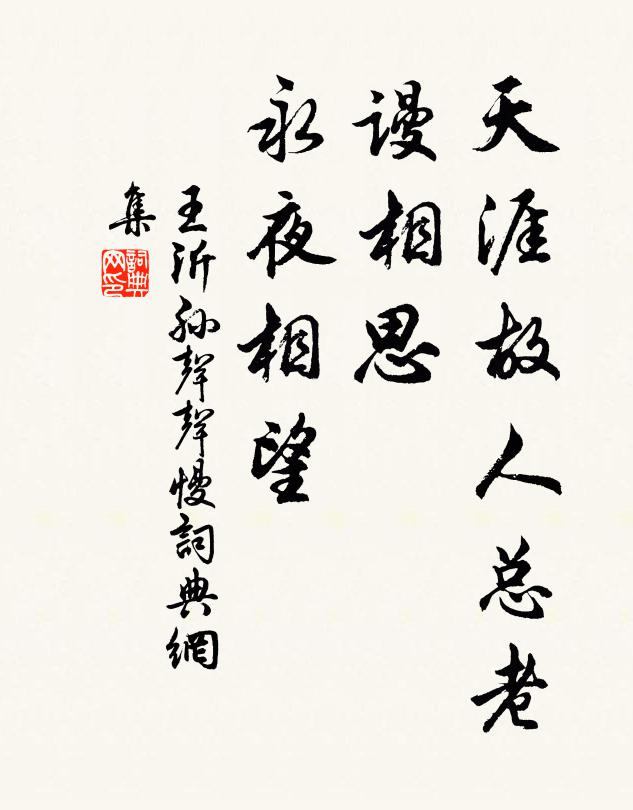 天涯故人总老
谩相思
永夜相望
王沂孙聲聲慢詞典網
集
詞典
网印